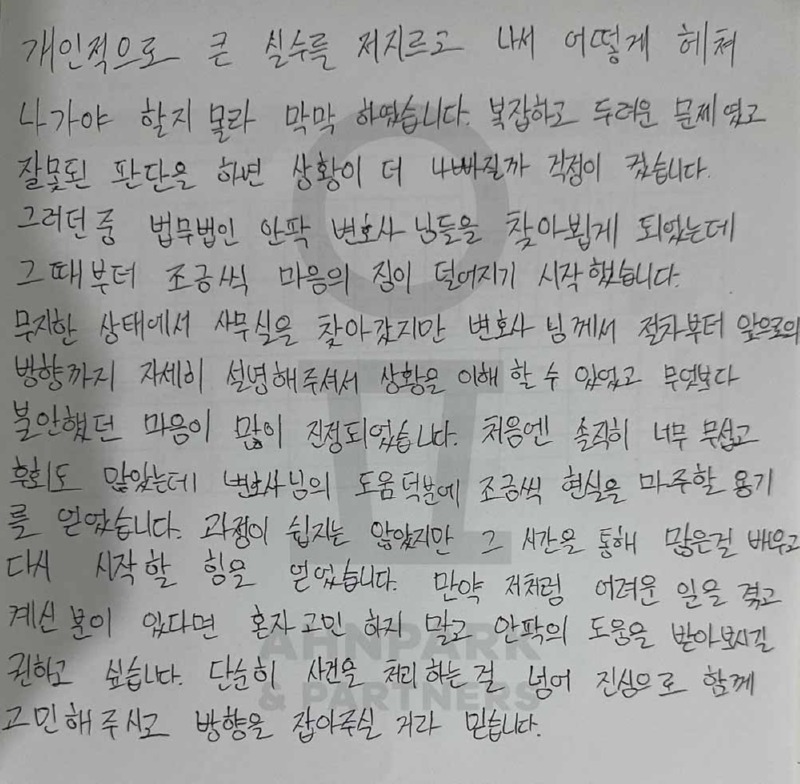 개인적으로 큰 실수를 저지르고 나서 어떻게 헤쳐
나가야 할지 몰라 막막 하였습니다. 복잡하고 두려운 문제였고
잘못된 판단을 하면 상황이 더 나빠질까 걱정이 컸습니다.
그러던 중 법무법인 안팍 변호사님들을 찾아뵙게 되었는데
그때부터 조금씩 마음의 짐이 덜어지기 시작했습니다.
무지한 상태에서 사무실을 찾아갔지만 변호사님께서 절차부터 앞으로의
방향까지 자세히 설명해주셔서 상황을 이해 할 수 있었고 무엇보다
불안했던 마음이 많이 진정되었습니다. 처음엔 솔직히 너무 무섭고
후회도 많았는데 변호사님의 도움덕분에 조금씩 현실을 마주할 용기
를 얻었습니다. 과정이 쉽지는 않았지만 그 시간을 통해 많은걸 배우고
다시 시작할 힘을 얻었습니다. 만약 저처럼 어려운 일을 겪고
계신 분이 있다면 혼자 고민 하지 말고 안팍의 도움을 받아보시길
권하고 싶습니다. 단순히 사건을 처리하는걸 넘어 진심으로 함께
고민해주시고 방향을 잡아주실 거라 믿습니다.
AHNPARK
& PARTNERS